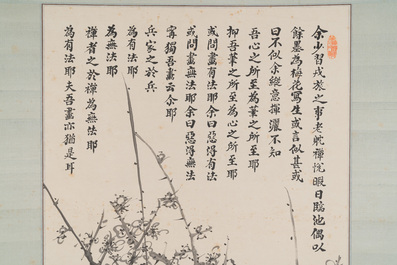 余少習戎旅之事老躭禪悅暇日臨池偶以
餘墨為梅花寫生或言似甚或
曰不似余縱意揮灑不知
吾心之所至為筆之所至耶
抑吾筆之所至為心之所至耶
或問畫有法耶余曰惡得有法
或問畫無法耶余曰惡得無法
寧獨吾畫云尒耶
兵家之於兵
為有法耶
為無法耶
禪者之於禪為無法耶
為有法耶夫吾畫亦猶是耳